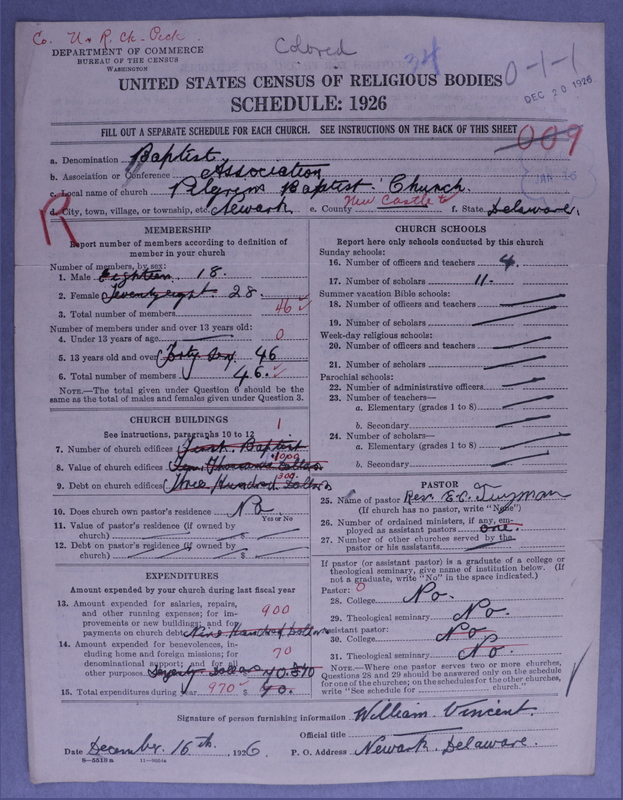 Co. U & R. Ch. Peck.
Colored
34
0-1-1
DEC 20 1926
DEPARTMENT OF COMMERCE
BUREAU OF THE CENSUS
WASHINGTON
UNITED STATES CENSUS OF RELIGIOUS BODIES
SCHEDULE: 1926
FILL OUT A SEPARATE SCHEDULE FOR EACH CHURCH. SEE INSTRUCTIONS ON THE BACK OF THIS SHEET
009
a. Denomination Baptist.
b. Association or Conference Association
c. Local name of church Pilgrim Baptist Church.
d. City, town, village, or township, etc. Newark e. County New Castle f. State Delaware.
R
MEMBERSHIP
Report number of members according to definition of
member in your church
Number of members, by sex:
1. Male Eighteen 18.
2. Female 28.
3. Total number of members 46
Number of members under and over 13 years old:
4. Under 13 years of age 0
5. 13 years old and over Forty Six 46
6. Total number of members 46.
NOTE.—The total given under Question 6 should be the
same as the total of males and females given under Question 3.
CHURCH BUILDINGS
See instructions, paragraphs 10 to 12
1
7. Number of church edifices Baptist
8. Value of church edifices Ten Thousand Dollars
9. Debt on church edifices Three Hundred Dollars 300
10. Does church own pastor's residence? No
Yes or No
11. Value of pastor's residence (if owned by
church) $
12. Debt on pastor's residence (if owned by
church) $
EXPENDITURES
Amount expended by your church during last fiscal year
13. Amount expended for salaries, repairs,
and other running expenses; for im-
provements or new building; and for
payments on church debt Nine Hundred Dollars 900
14. Amount expended for benevolences, in-
cluding home and foreign missions; for
denominational support; and for all
other purposes Seventy Dollars 70
15. Total expenditures during year 970 $ 70.
CHURCH SCHOOLS
Report here only schools conducted by this church
Sunday schools:
16. Number of officers and teachers 4.
17. Number of scholars 11.
Summer vacation Bible schools:
18. Number of officers and teachers
19. Number of scholars
Week-day religious schools:
20. Number of officers and teachers
21. Number of scholars
Parochial schools:
22. Number of administrative officers
23. Number of teachers—
a. Elementary (grades 1 to 8)
b. Secondary
24. Number of scholars—
a. Elementary (grades 1 to 8)
b. Secondary
PASTOR
25. Name of pastor Rev. E. C.
(If church has no pastor, write "None")
26. Number of ordained ministers, if any, em-
ployed as assistant pastors one.
27. Number of other churches served by the
pastor or his assistants
If pastor (or assistant pastor) is a graduate of a college or
theological seminary, give name of institution below. (If
not a graduate, write "No" in the space indicated.)
Pastor: 0
28. College No.
29. Theological seminary No.
Assistant pastor:
30. College No
31. Theological seminary No.
NOTE.—Where one pastor serves two or more churches,
Questions 28 and 29 should be answered only on the schedule
for one of the churches; on the schedules for the other churches,
write "See schedule for church."
Signature of person furnishing information William Vincent.
Official title
Date December 16th, 1926 P. O. Address Newark, Delaware.
8—5518a 11—9054a